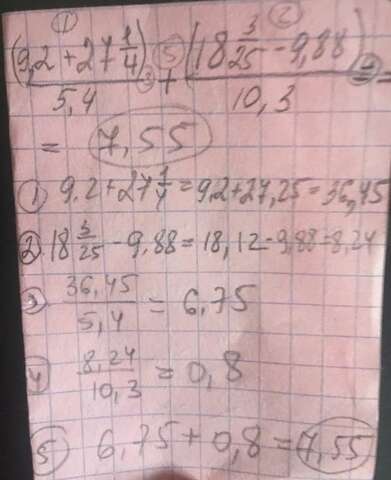 ① ②
(9,2 + 27 1/4) / 5,4 ③ ⑤ + (18 3/25 - 9,88) / 10,3 ④ =
= 7,55
① 9.2 + 27 1/4 = 9,2 + 27,25 = 36,45
② 18 3/25 - 9,88 = 18,12 - 9,88 = 8,24
3 36,45 / 5,4 = 6,75
4 8,24 / 10,3 = 0,8
⑤ 6,75 + 0,8 = 7,55